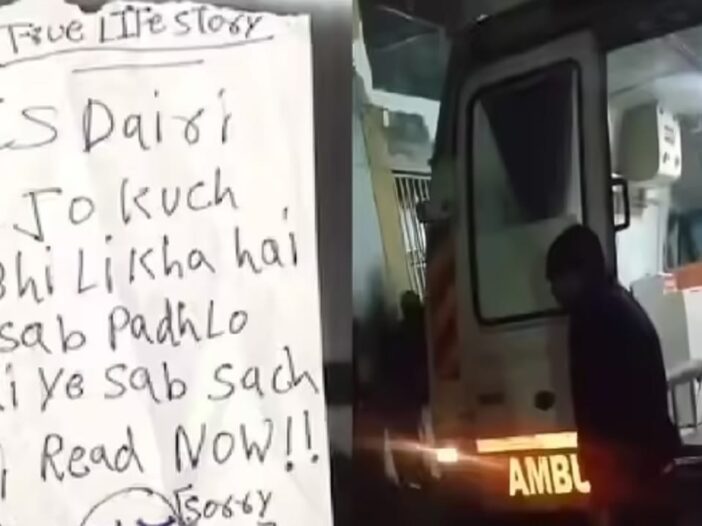 True LIFe Story
IS Dairi
Jo kuch
Bhi Likha hai
sab PadhLo
Ye sab sach
Read NOW!!
Sorry
AMBU